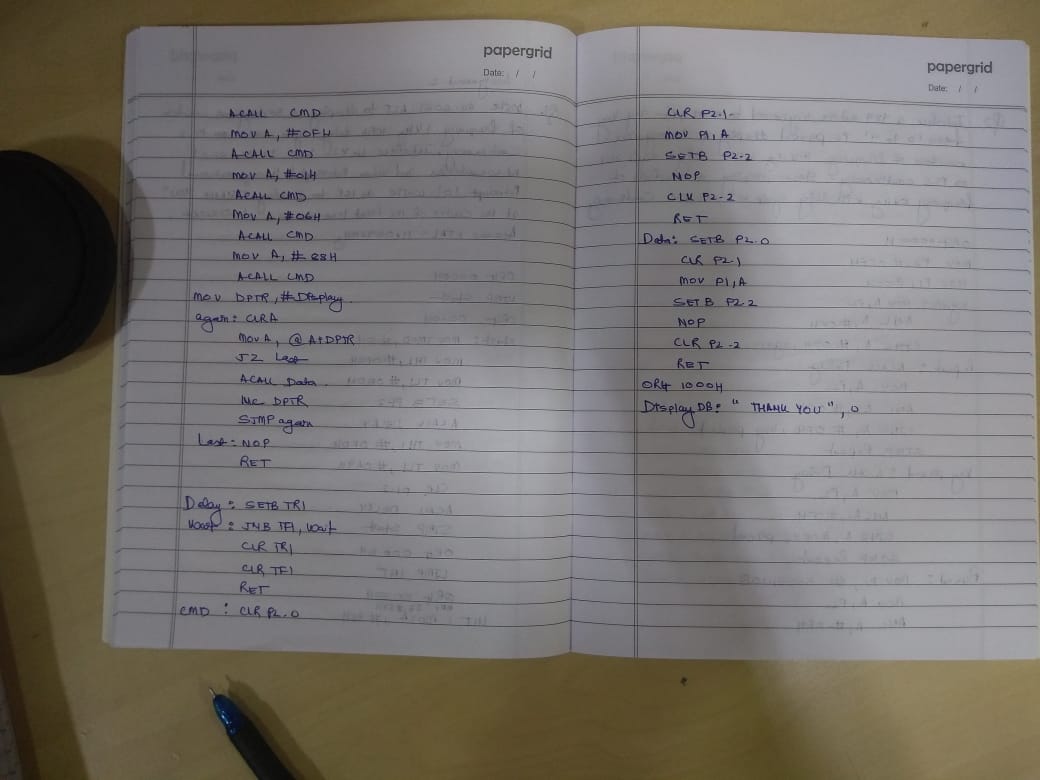 papergrid
Date: / /
ACALL CMD
MOV A, #0FH
ACALL CMD
MOV A, #01H
ACALL CMD
MOV A, #06H
ACALL CMD
MOV A, #88H
ACALL CMD
MOV DPTR, #Display
again: CLRA
MOVA, @A+DPTR
JZ Last
ACALL Data
INC DPTR
SJMP again
Last: NOP
RET
Delay: SETB TR1
Wait: JNB TF1, Wait
CLR TR1
CLR TF1
RET
CMD: CLR P2.0
papergrid
Date: / /
CLR P2.1
MOV P1, A
SETB P2.2
NOP
CLR P2.2
RET
Data: SETB P2.0
CLR P2.1
MOV P1, A
SETB P2.2
NOP
CLR P2.2
RET
ORG 1000H
Display DB: "THANK YOU", 0